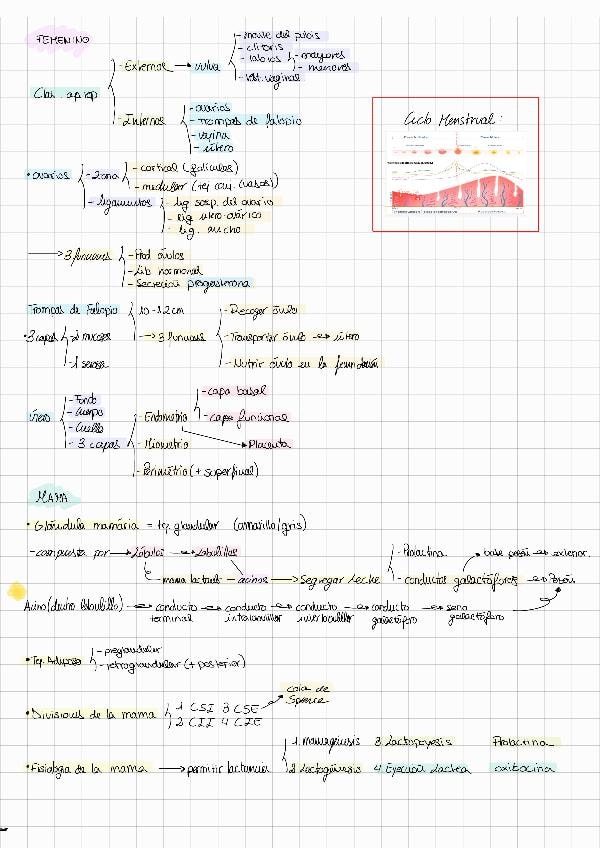 FEMENINO
Clas. ap rep
- Externos → vulva
- monte del pubis
- clitoris
- labios - mayores
- menores
- vest. vaginal
- Internos
- ovarios
- trompas de falopio
- vagina
- útero
Ciclo Menstrual:
• ovarios - zona - cortical (foliculos)
- medular (tej con. vasos)
- ligamentos - lig susp. del ovario
- lig utero-ovárico
- lig. ancho
→ 3 funciones - Prod óvulos
- Lib hormonas
- Secreción progesterona
Trompas de Falopio 10-12cm
→ 3 funciones
- Recoger óvulo
- Transportar óvulo → útero
- Nutrir óvulo en la fecundación
• 3 capas - 2 mucosa
- 1 serosa
Útero
- Fondo
- Cuerpo
- Cuello
- 3 capas
- Endometrio
- capa basal
- capa funcional
→ Placenta
- Miometrio
- Perimetrio (+ superficial)
MAMA
• Glándula mamária = tej. glandular (amarillo/gris)
- compuesta por → Lóbulos → Lobulillos
acinos → Segregar Leche
- Prolactina
- conductos galactóforos → Pezón
• base pezón → exterior.
Acino (dentro lobulillo) → conducto terminal → conducto → conducto → conducto galactóforo → seno galactóforo
• Tej. Adiposo - preglandular
- retroglandular (+ posterior)
• Divisiones de la mama 1 CSI 3 CSE
2 CII 4 CIE
cola de Spence
• Fisiología de la mama → permitir lactancia
1 mamogénesis 3 Lactopoyesis Prolactina
2 Lactogénesis 4 Eyección Láctea oxitocina